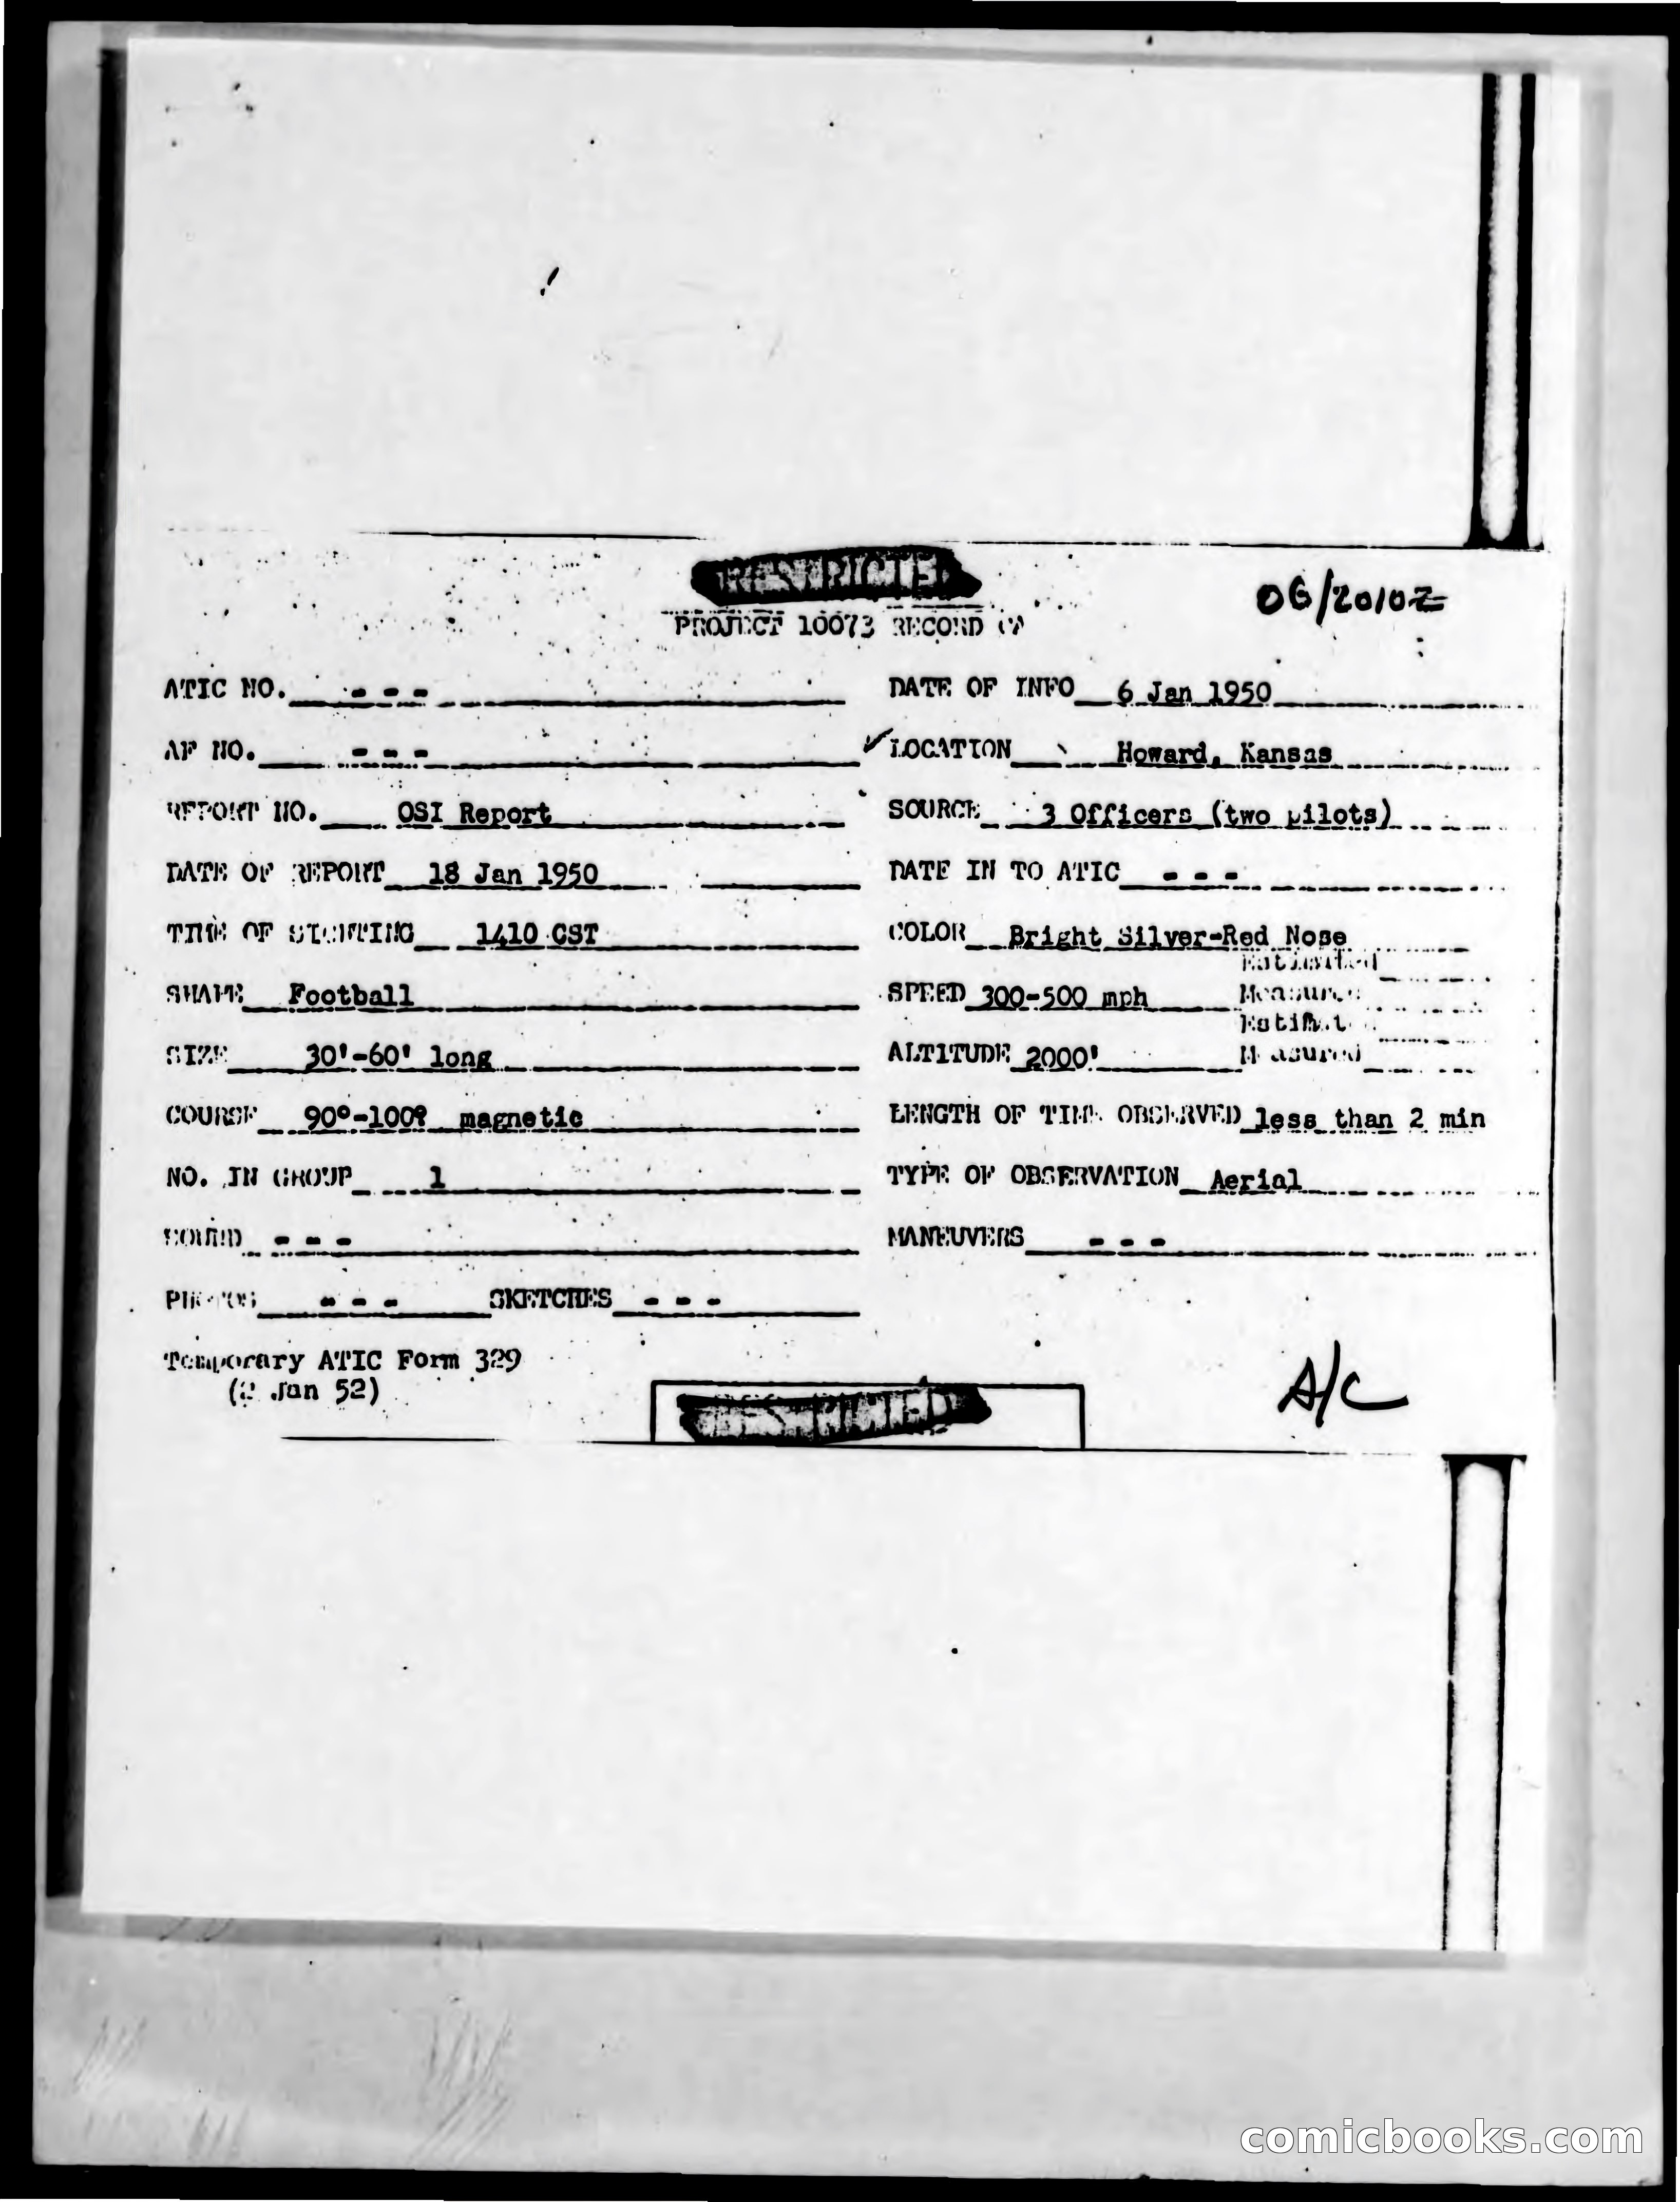 RESTRICTED
06/2010Z
PROJECT 10073 RECORD
ATIC NO. - - - DATE OF INFO 6 Jan 1950
AF NO. - - - ✓LOCATION Howard, Kansas
REPORT NO. OSI Report SOURCE 3 Officers (two pilots)
DATE OF REPORT 18 Jan 1950 DATE IN TO ATIC - - -
TIME OF SIGHTING 1410 CST COLOR Bright Silver-Red Nose
Estimated
SHAPE Football SPEED 300-500 mph Measured
Estimated
SIZE 30'-60' long ALTITUDE 2000' Measured
COURSE 90°-100° magnetic LENGTH OF TIME OBSERVED less than 2 min
NO. IN GROUP 1 TYPE OF OBSERVATION Aerial
SOUND - - - MANEUVERS - - -
PHOTOS - - - SKETCHES - - -
Temporary ATIC Form 329
(2 Jan 52)
A/C
RESTRICTED
comicbooks.com